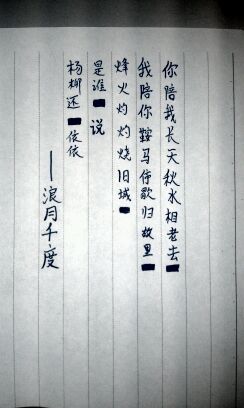 你陪我长天秋水相老去
我陪你鞍马侍歌归故里
烽火灼灼烧旧城
是谁说
杨柳还依依
——浪月千度